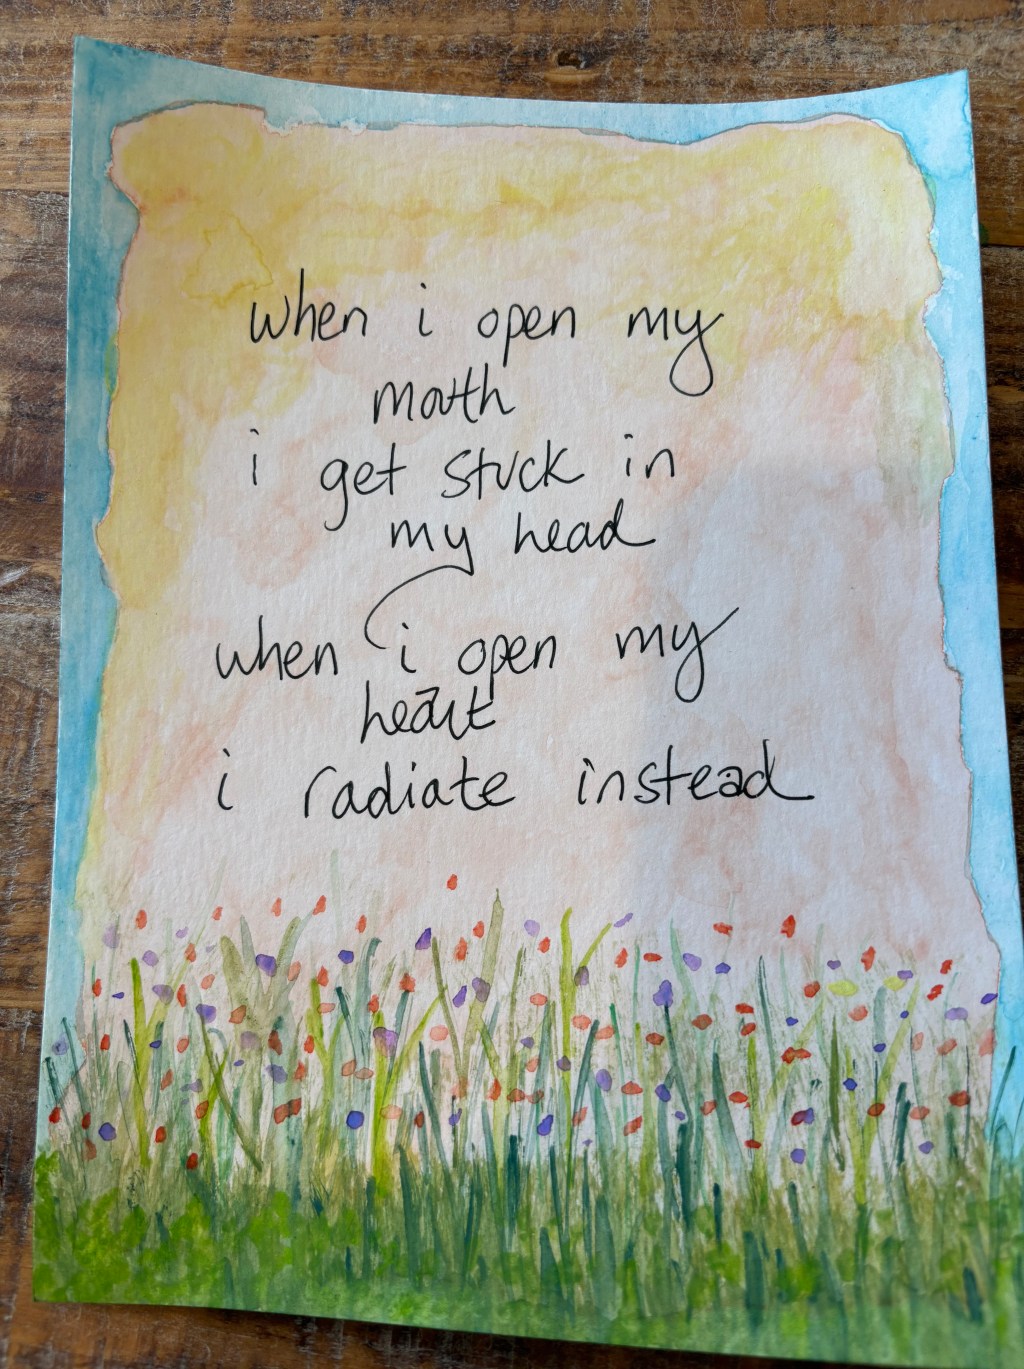 when i open my
mouth
i get stuck in
my head
when i open my
heart
i radiate instead